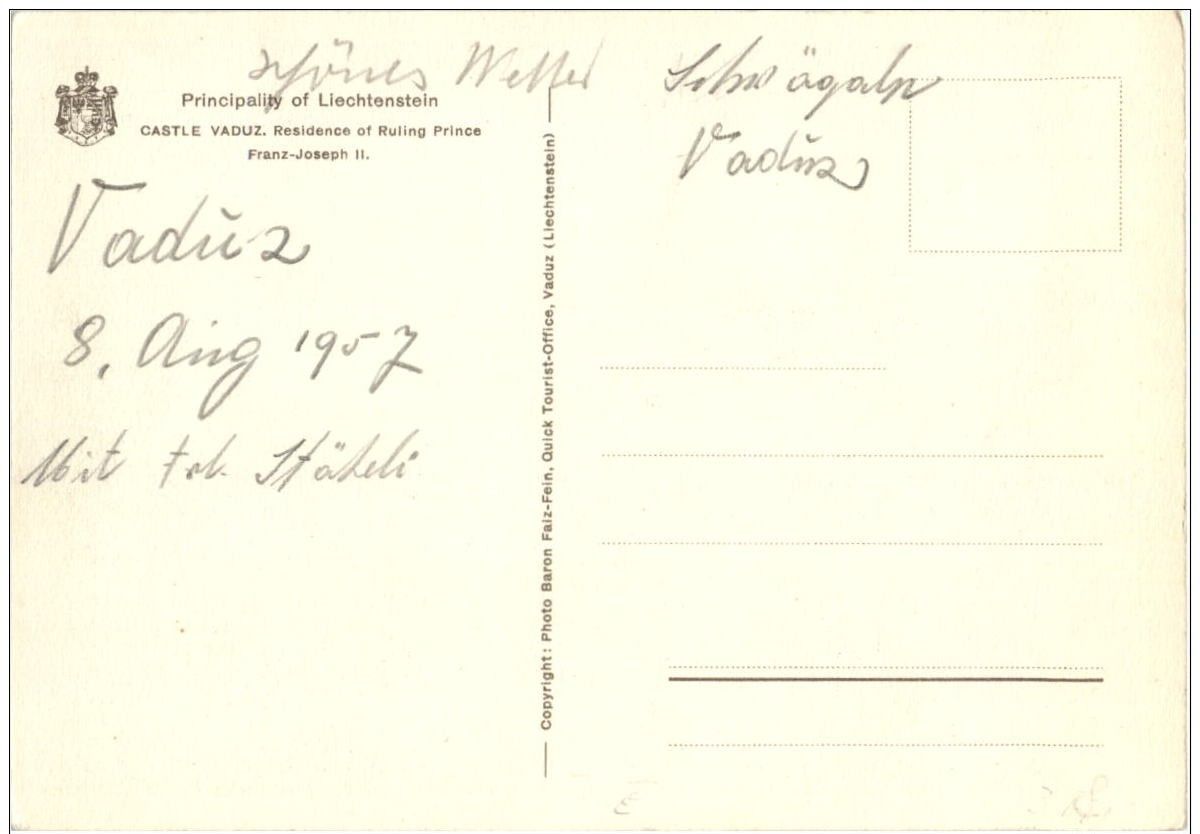 schönes Wetter
Principality of Liechtenstein
CASTLE VADUZ. Residence of Ruling Prince
Franz-Joseph II.
Vaduz
8. Aug 1957
Mit Frl. Stäheli
Copyright: Photo Baron Falz-Fein, Quick Tourist-Office, Vaduz (Liechtenstein)
Schwägalp
Vaduz